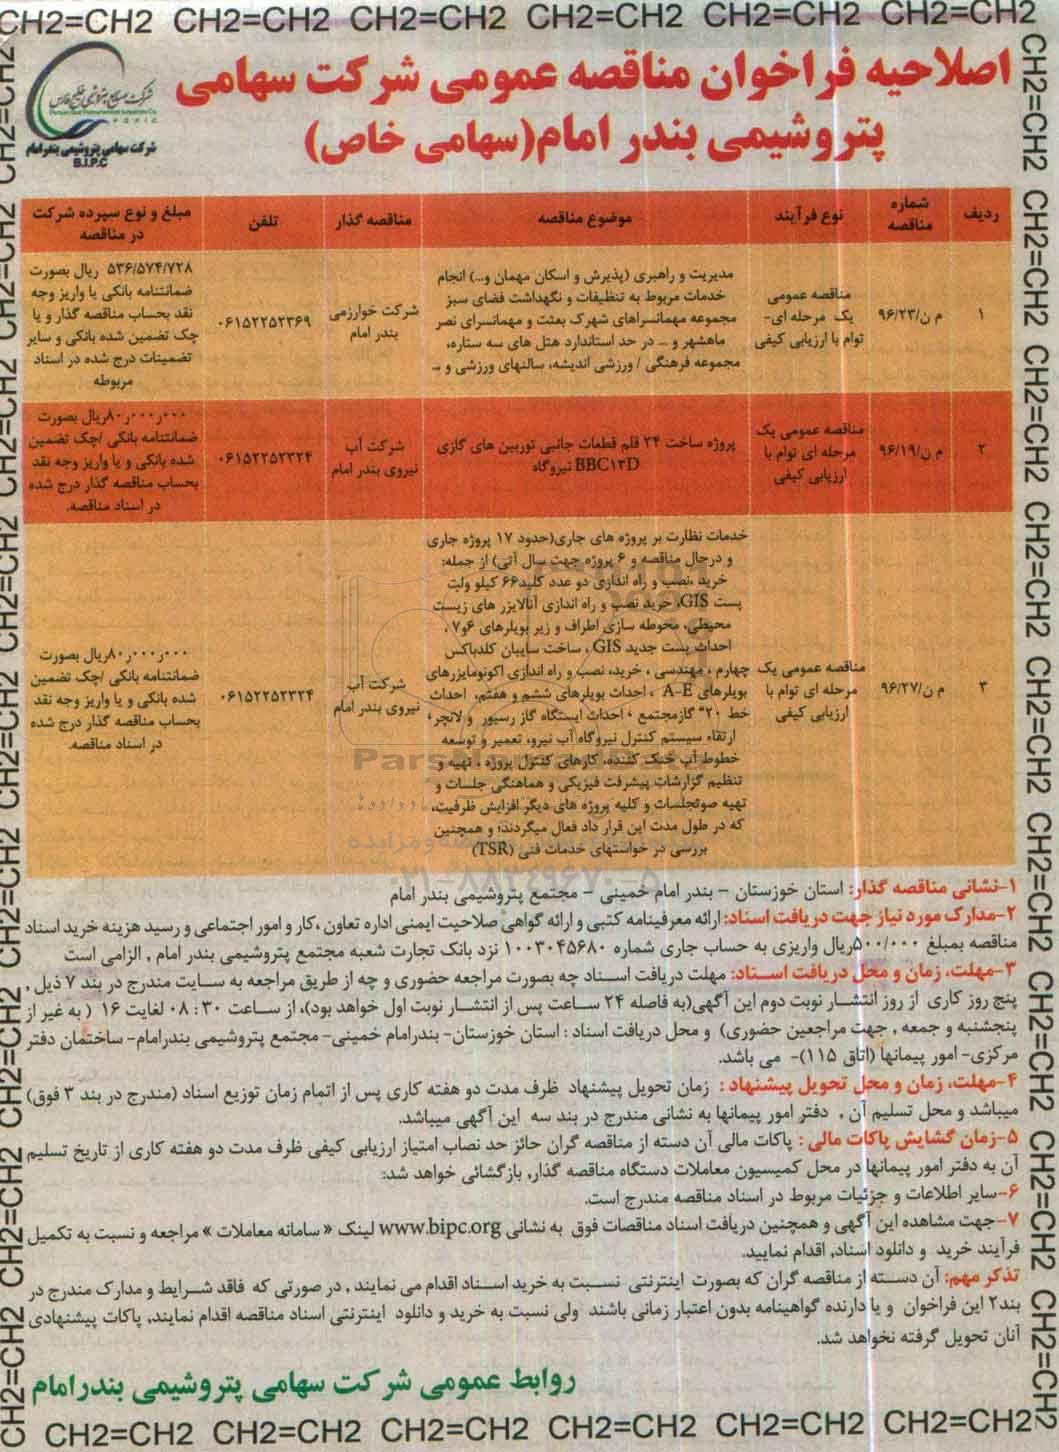 CH2=CH2 CH2=CH2 CH2=CH2 CH2=CH2 CH2=CH2 CH2=CH2
اصلاحیه فراخوان مناقصه عمومی شرکت سهامی
پتروشیمی بندر امام(سهامی خاص)
شرکت صنایع پتروشیمی خلیج فارس
شرکت سهامی پتروشیمی بندرامام
B.I.P.C
ردیف
شماره مناقصه
نوع فرآیند
موضوع مناقصه
مناقصه گذار
تلفن
مبلغ و نوع سپرده شرکت در مناقصه
۱
م ن/۹۶/۲۳
مناقصه عمومی
یک مرحله ای-
توام با ارزیابی کیفی
مدیریت و راهبری (پذیرش و اسکان مهمان و...) انجام
خدمات مربوط به تنظیفات و نگهداشت فضای سبز
مجموعه مهمانسراهای شهرک بعثت و مهمانسرای نصر
ماهشهر و ... در حد استاندارد هتل های سه ستاره،
مجموعه فرهنگی / ورزشی اندیشه، سالنهای ورزشی و ...
شرکت خوارزمی
بندر امام
۰۶۱۵۲۲۵۲۳۶۹
۵۳۶/۵۷۴/۷۲۸ ریال بصورت
ضمانتنامه بانکی یا واریز وجه
نقد بحساب مناقصه گذار و یا
چک تضمین شده بانکی و سایر
تضمینات درج شده در اسناد
مربوطه
۲
م ن/۹۶/۱۹
مناقصه عمومی یک
مرحله ای توام با
ارزیابی کیفی
پروژه ساخت ۲۴ قلم قطعات جانبی توربین های گازی
BBC۱۳D نیروگاه
شرکت آب
نیروی بندر امام
۰۶۱۵۲۲۵۲۳۲۴
۸۰ر۰۰۰ر۰۰۰ریال بصورت
ضمانتنامه بانکی /چک تضمین
شده بانکی و یا واریز وجه نقد
بحساب مناقصه گذار درج شده
در اسناد مناقصه.
۳
م ن/۹۶/۲۷
مناقصه عمومی یک
مرحله ای توام با
ارزیابی کیفی
خدمات نظارت بر پروژه های جاری(حدود ۱۷ پروژه جاری
و درحال مناقصه و ۶ پروژه جهت سال آتی) از جمله:
خرید ،نصب و راه اندازی دو عدد کلید۶۶ کیلو ولت
پست GIS، خرید نصب و راه اندازی آنالایزر های زیست
محیطی، محوطه سازی اطراف و زیر بویلرهای ۶و۷ ،
احداث پست جدید GIS ، ساخت سایبان کلدباکس
چهارم ، مهندسی ، خرید، نصب و راه اندازی اکونومایزرهای
بویلرهای A-E ، احداث بویلرهای ششم و هفتم، احداث
خط ۲۰" گازمجتمع ، احداث ایستگاه گاز رسیور و لانچر،
ارتقاء سیستم کنترل نیروگاه آب نیرو، تعمیر و توسعه
خطوط آب خنک کننده، کارهای کنترل پروژه ، تهیه و
تنظیم گزارشات پیشرفت فیزیکی و هماهنگی جلسات و
تهیه صوتجلسات و کلیه پروژه های دیگر افزایش ظرفیت،
که در طول مدت این قرار داد فعال میگردند؛ و همچنین
بررسی در خواستهای خدمات فنی (TSR)
شرکت آب
نیروی بندر امام
۰۶۱۵۲۲۵۲۳۲۴
۸۰ر۰۰۰ر۰۰۰ریال بصورت
ضمانتنامه بانکی /چک تضمین
شده بانکی و یا واریز وجه نقد
بحساب مناقصه گذار درج شده
در اسناد مناقصه.
۰۲۱-۸۸۳۴۹۶۷۰-۵
۱-نشانی مناقصه گذار: استان خوزستان – بندر امام خمینی – مجتمع پتروشیمی بندر امام
۲-مدارک مورد نیاز جهت دریافت اسناد: ارائه معرفینامه کتبی و ارائه گواهی صلاحیت ایمنی اداره تعاون ،کار و امور اجتماعی و رسید هزینه خرید اسناد
مناقصه بمبلغ ۵۰۰/۰۰۰ریال واریزی به حساب جاری شماره ۱۰۰۳۰۴۵۶۸۰ نزد بانک تجارت شعبه مجتمع پتروشیمی بندر امام , الزامی است
۳-مهلت، زمان و محل دریافت اسناد: مهلت دریافت اسناد چه بصورت مراجعه حضوری و چه از طریق مراجعه به سایت مندرج در بند ۷ ذیل ,
پنج روز کاری از روز انتشار نوبت دوم این آگهی(به فاصله ۲۴ ساعت پس از انتشار نوبت اول خواهد بود)، از ساعت ۳۰ : ۰۸ لغایت ۱۶ ( به غیر از
پنجشنبه و جمعه , جهت مراجعین حضوری) و محل دریافت اسناد : استان خوزستان- بندرامام خمینی- مجتمع پتروشیمی بندرامام- ساختمان دفتر
مرکزی- امور پیمانها (اتاق ۱۱۵)- می باشد.
۴-مهلت، زمان و محل تحویل پیشنهاد : زمان تحویل پیشنهاد ظرف مدت دو هفته کاری پس از اتمام زمان توزیع اسناد (مندرج در بند ۳ فوق)
میباشد و محل تسلیم آن , دفتر امور پیمانها به نشانی مندرج در بند سه این آگهی میباشد.
۵-زمان گشایش پاکات مالی : پاکات مالی آن دسته از مناقصه گران حائز حد نصاب امتیاز ارزیابی کیفی ظرف مدت دو هفته کاری از تاریخ تسلیم
آن به دفتر امور پیمانها در محل کمیسیون معاملات دستگاه مناقصه گذار, بازگشائی خواهد شد:
۶-سایر اطلاعات و جزئیات مربوط در اسناد مناقصه مندرج است.
۷-جهت مشاهده این آگهی و همچنین دریافت اسناد مناقصات فوق به نشانی www.bipc.org لینک « سامانه معاملات » مراجعه و نسبت به تکمیل
فرآیند خرید و دانلود اسناد, اقدام نمایید.
تذکر مهم: آن دسته از مناقصه گران که بصورت اینترنتی نسبت به خرید اسناد اقدام می نمایند , در صورتی که فاقد شرایط و مدارک مندرج در
بند۲ این فراخوان و یا دارنده گواهینامه بدون اعتبار زمانی باشند ولی نسبت به خرید و دانلود اینترنتی اسناد مناقصه اقدام نمایند, پاکات پیشنهادی
آنان تحویل گرفته نخواهد شد.
روابط عمومی شرکت سهامی پتروشیمی بندرامام
CH2=CH2 CH2=CH2 CH2=CH2 CH2=CH2 CH2=CH2 CH2=CH2